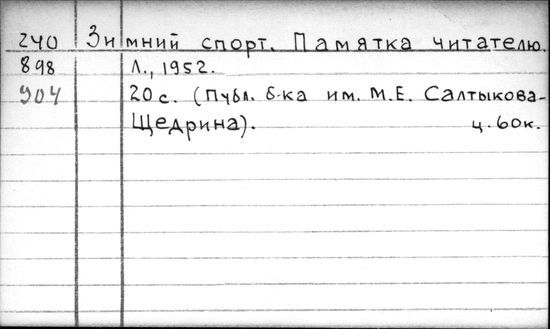 240 Зимний спорт. Памятка читателю.
898 Л., 1952.
904 20 с. (Публ. б-ка им. М.Е. Салтыкова-
Щедрина). ц. 60к.